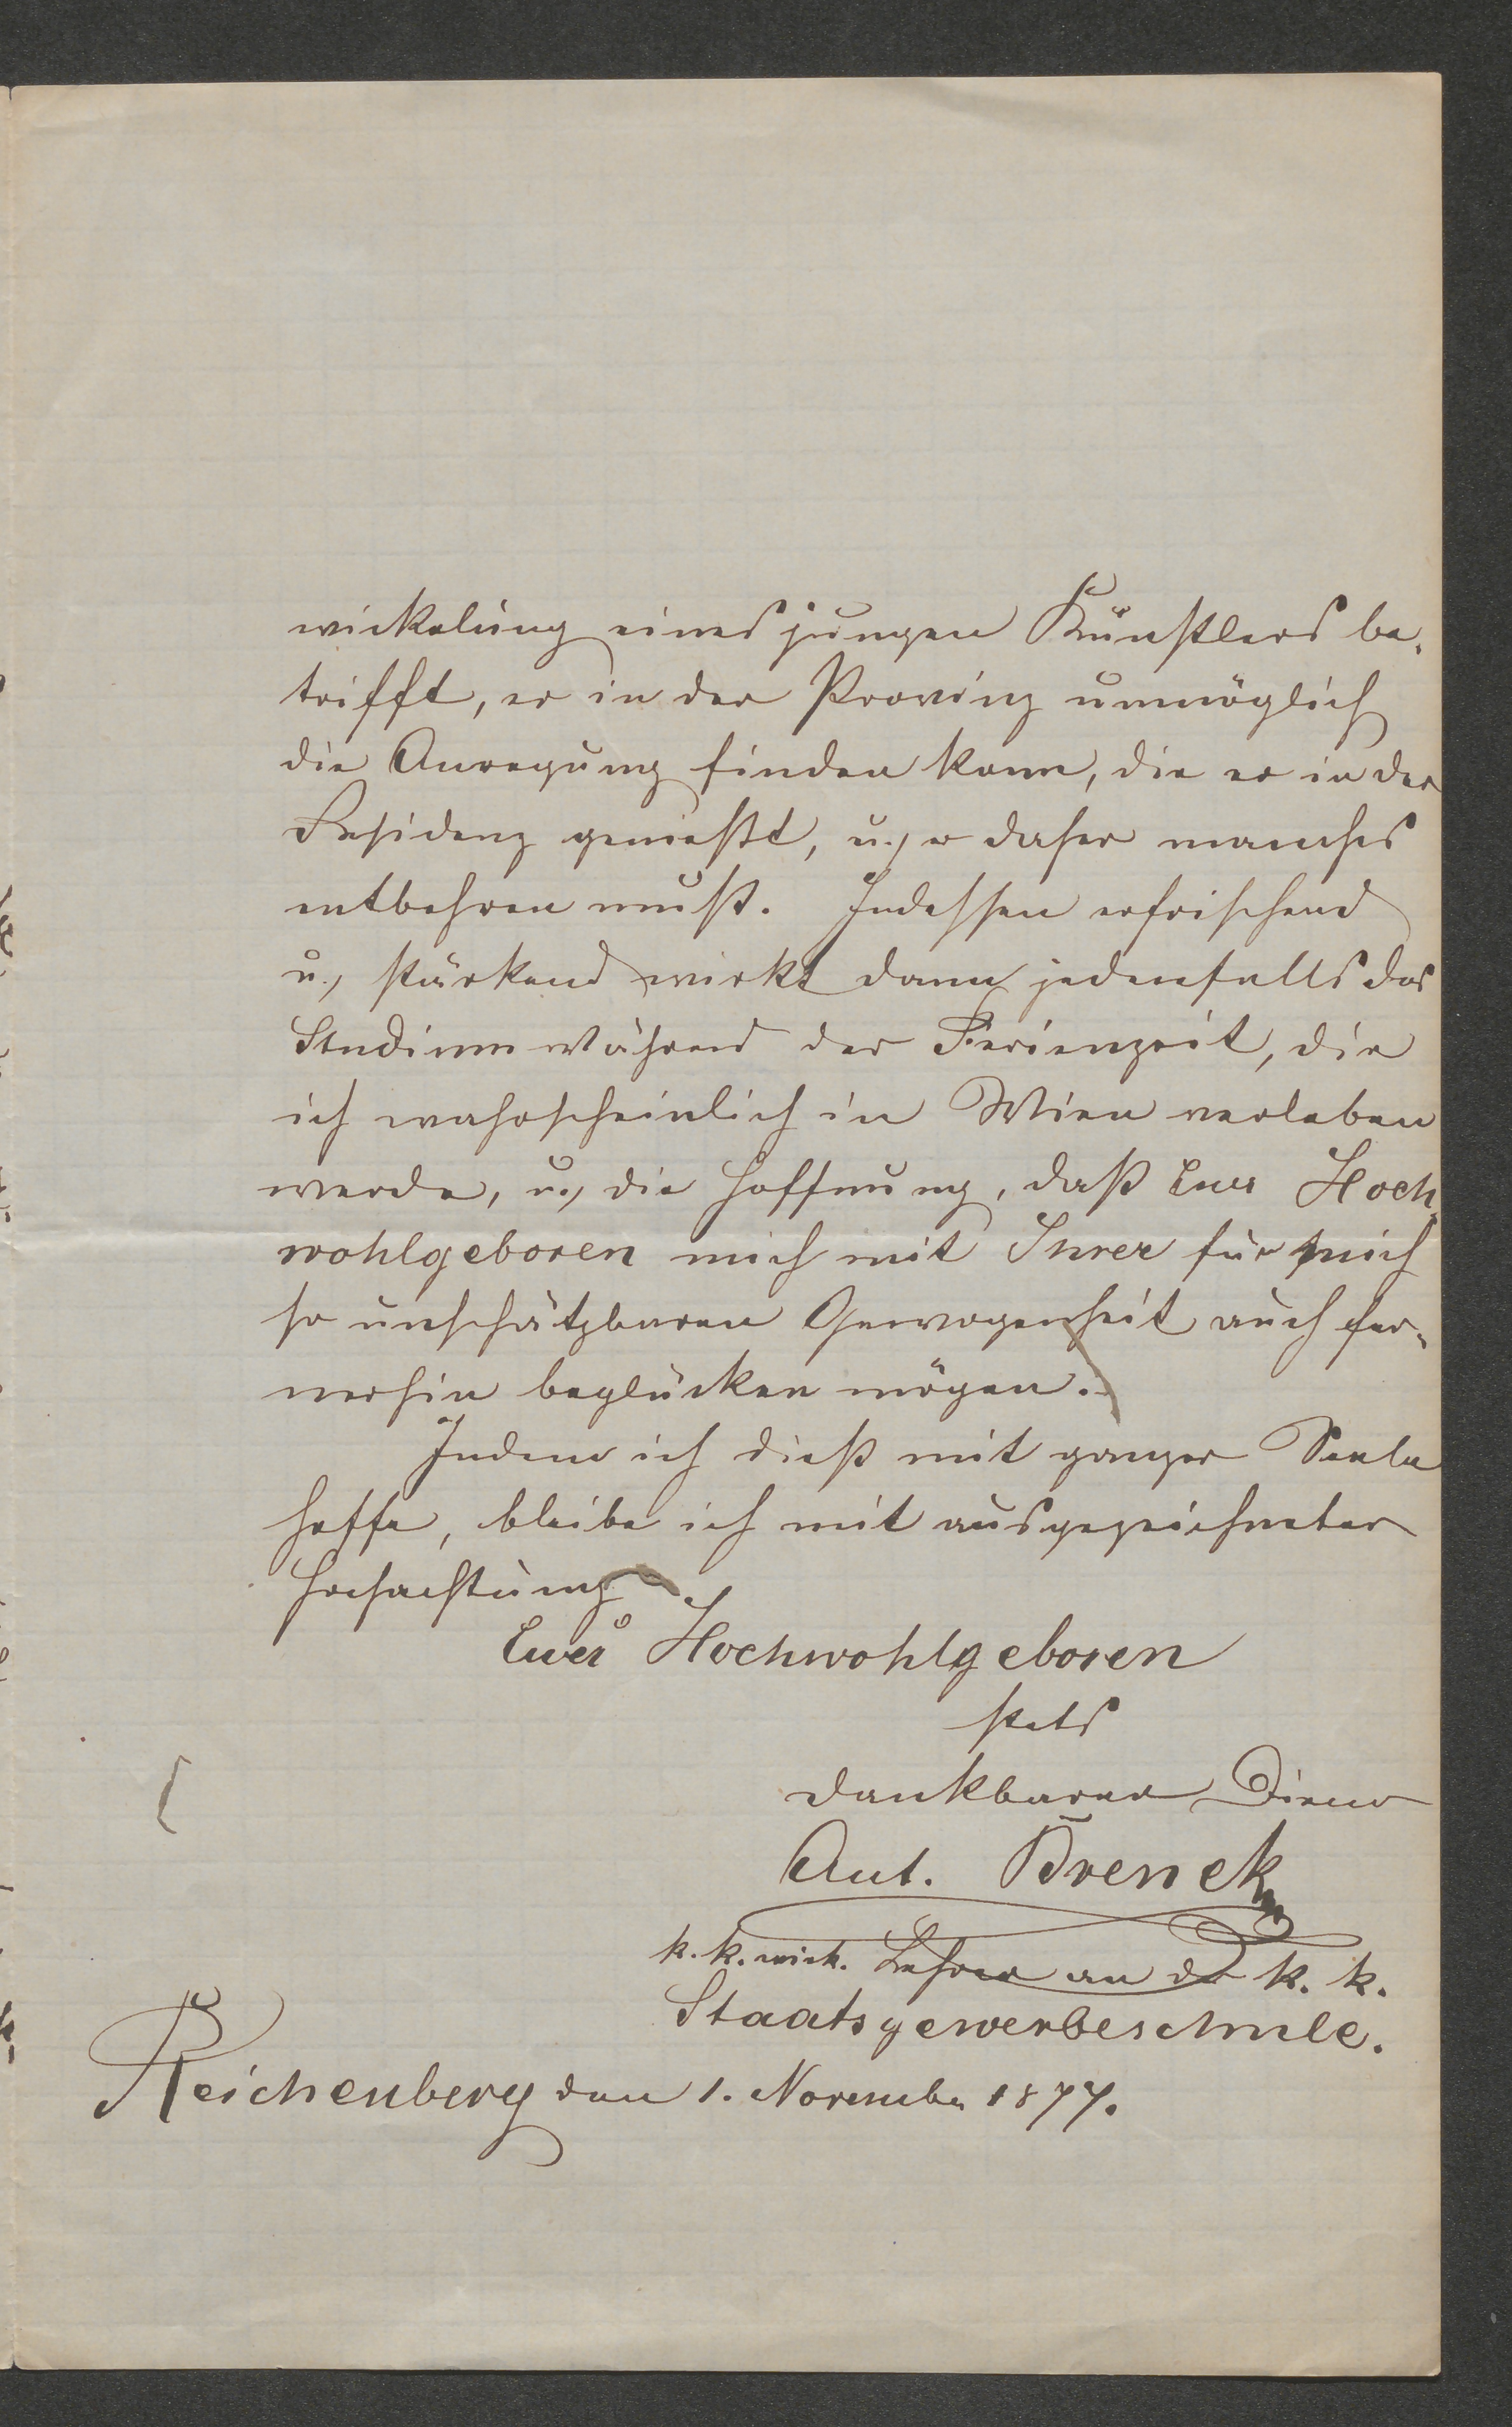 wickelung eines jungen Künstlers be-
trifft, er in der Provinz unmöglich
die Anregung finden kann, die er in der
Residenz genießt, u., er daher manches
entbehren muß. Indessen erfrischend
u., stärkend wirkt dann jedenfalls das
Studium während der Ferienzeit, die
ich wahrscheinlich in Wien verleben
werde, u., die Hoffnung, daß Euer Hoch-
wohlgeboren mich mit Ihrer für mich
so unschätzbaren Gewogenheit auch fer-
nerhin beglücken mögen.
Indem ich dieß mit ganzer Seele
hoffe, bleibe ich mit ausgezeichneter
Hochachtung
Euer Hochwohlgeboren
stets
dankbarer Diener
Ant. Brenek
k. k. wirk. Lehrer an der k. k.
Staatsgewerbeschule.
Reichenberg den 1. November 1877.